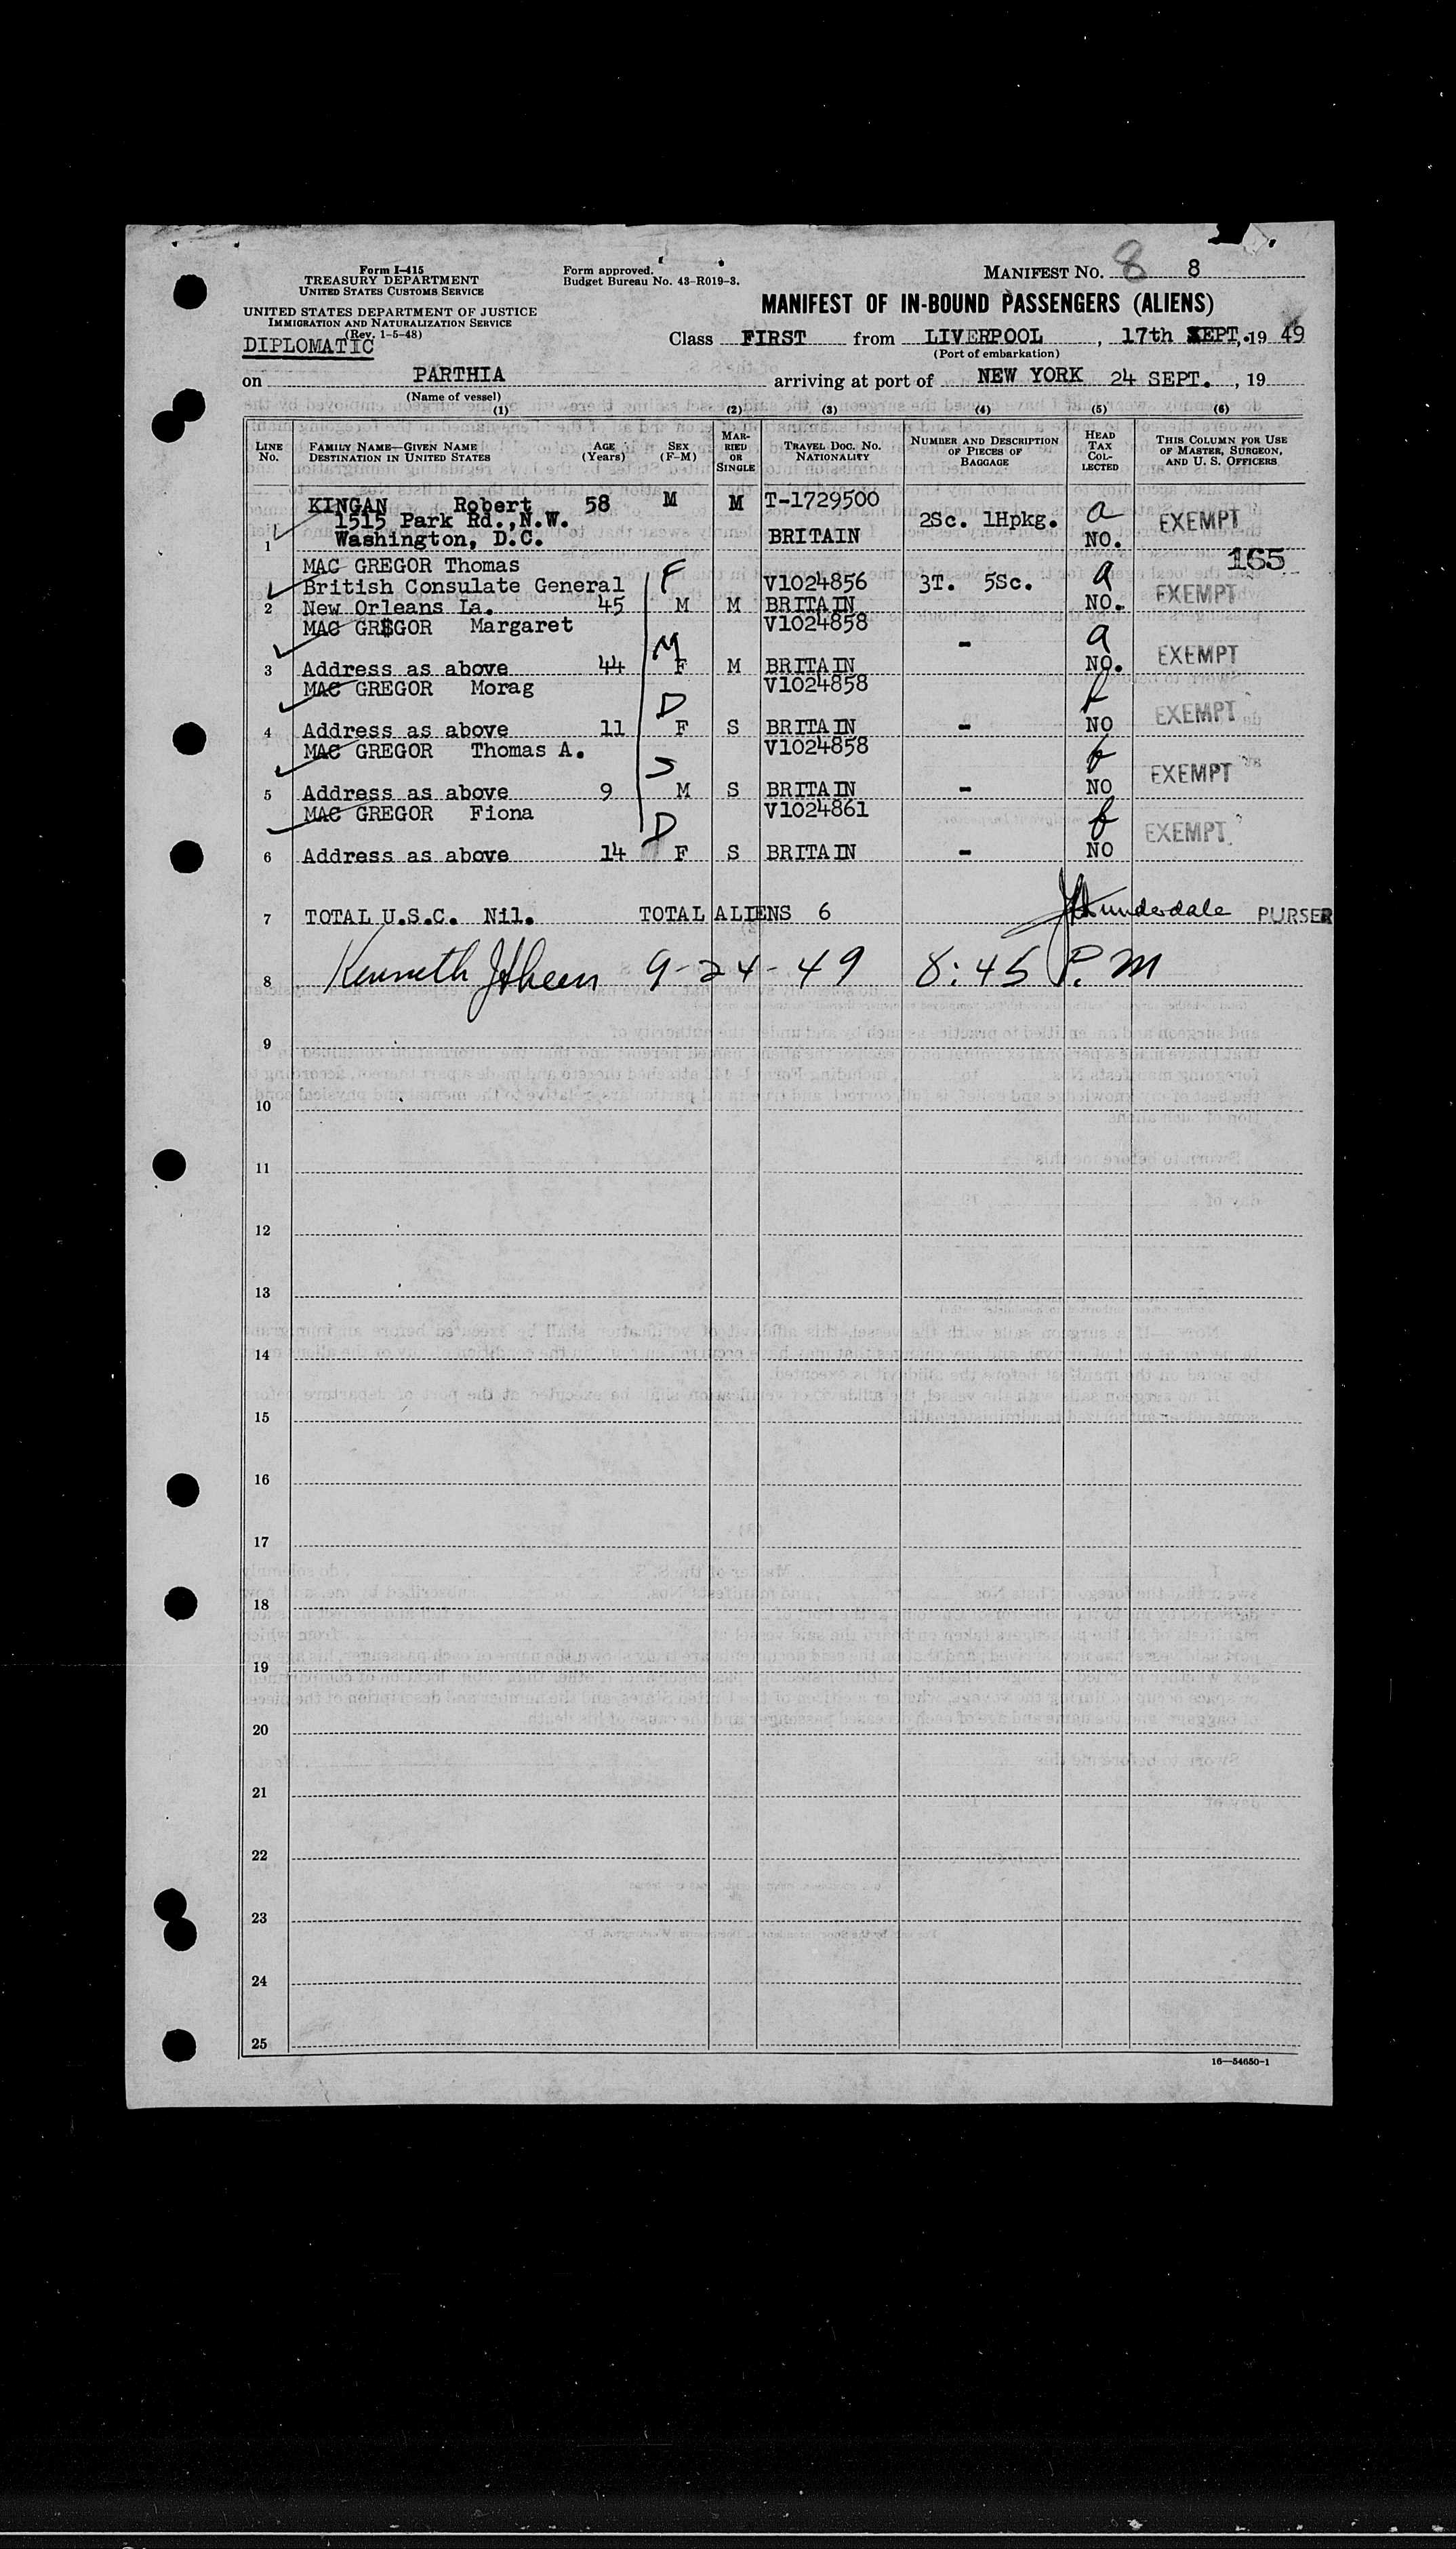 Form I-415
TREASURY DEPARTMENT
UNITED STATES CUSTOMS SERVICE
UNITED STATES DEPARTMENT OF JUSTICE
IMMIGRATION AND NATURALIZATION SERVICE
(Rev. 1-5-48)
DIPLOMATIC
Form approved.
Budget Bureau No. 43-R019-3.
MANIFEST NO. 8 8
MANIFEST OF IN-BOUND PASSENGERS (ALIENS)
Class FIRST from LIVERPOOL, 17th SEPT, 19 49
(Port of embarkation)
on PARTHIA arriving at port of NEW YORK 24 SEPT., 19
(Name of vessel)
(1) (2) (3) (4) (5) (6)
LINE No. FAMILY NAME—GIVEN NAME DESTINATION IN UNITED STATES AGE (Years) SEX (F-M) MARRIED OR SINGLE TRAVEL DOC. NO. NATIONALITY NUMBER AND DESCRIPTION OF PIECES OF BAGGAGE HEAD TAX COLLECTED THIS COLUMN FOR USE OF MASTER, SURGEON, AND U. S. OFFICERS
KINGAN Robert 58 M M T-1729500
1515 Park Rd.,N.W. 2Sc. 1Hpkg. a EXEMPT
1 Washington, D.C. BRITAIN NO.
MAC GREGOR Thomas 165
British Consulate General F V1024856 3T. 5Sc. a EXEMPT
2 New Orleans La. 45 M M BRITAIN NO.
MAC GREGOR Margaret V1024858
M - a EXEMPT
3 Address as above 44 F M BRITAIN NO.
MAC GREGOR Morag V1024858
D f EXEMPT
4 Address as above 11 F S BRITAIN - NO
MAC GREGOR Thomas A. V1024858
S f EXEMPT
5 Address as above 9 M S BRITAIN - NO
MAC GREGOR Fiona V1024861
D f EXEMPT
6 Address as above 14 F S BRITAIN - NO
7 TOTAL U.S.C. Nil. TOTAL ALIENS 6 PURSER
8 Kenneth 9-24-49 8:45 P.M
9
10
11
12
13
14
15
16
17
18
19
20
21
22
23
24
25
16—54650-1